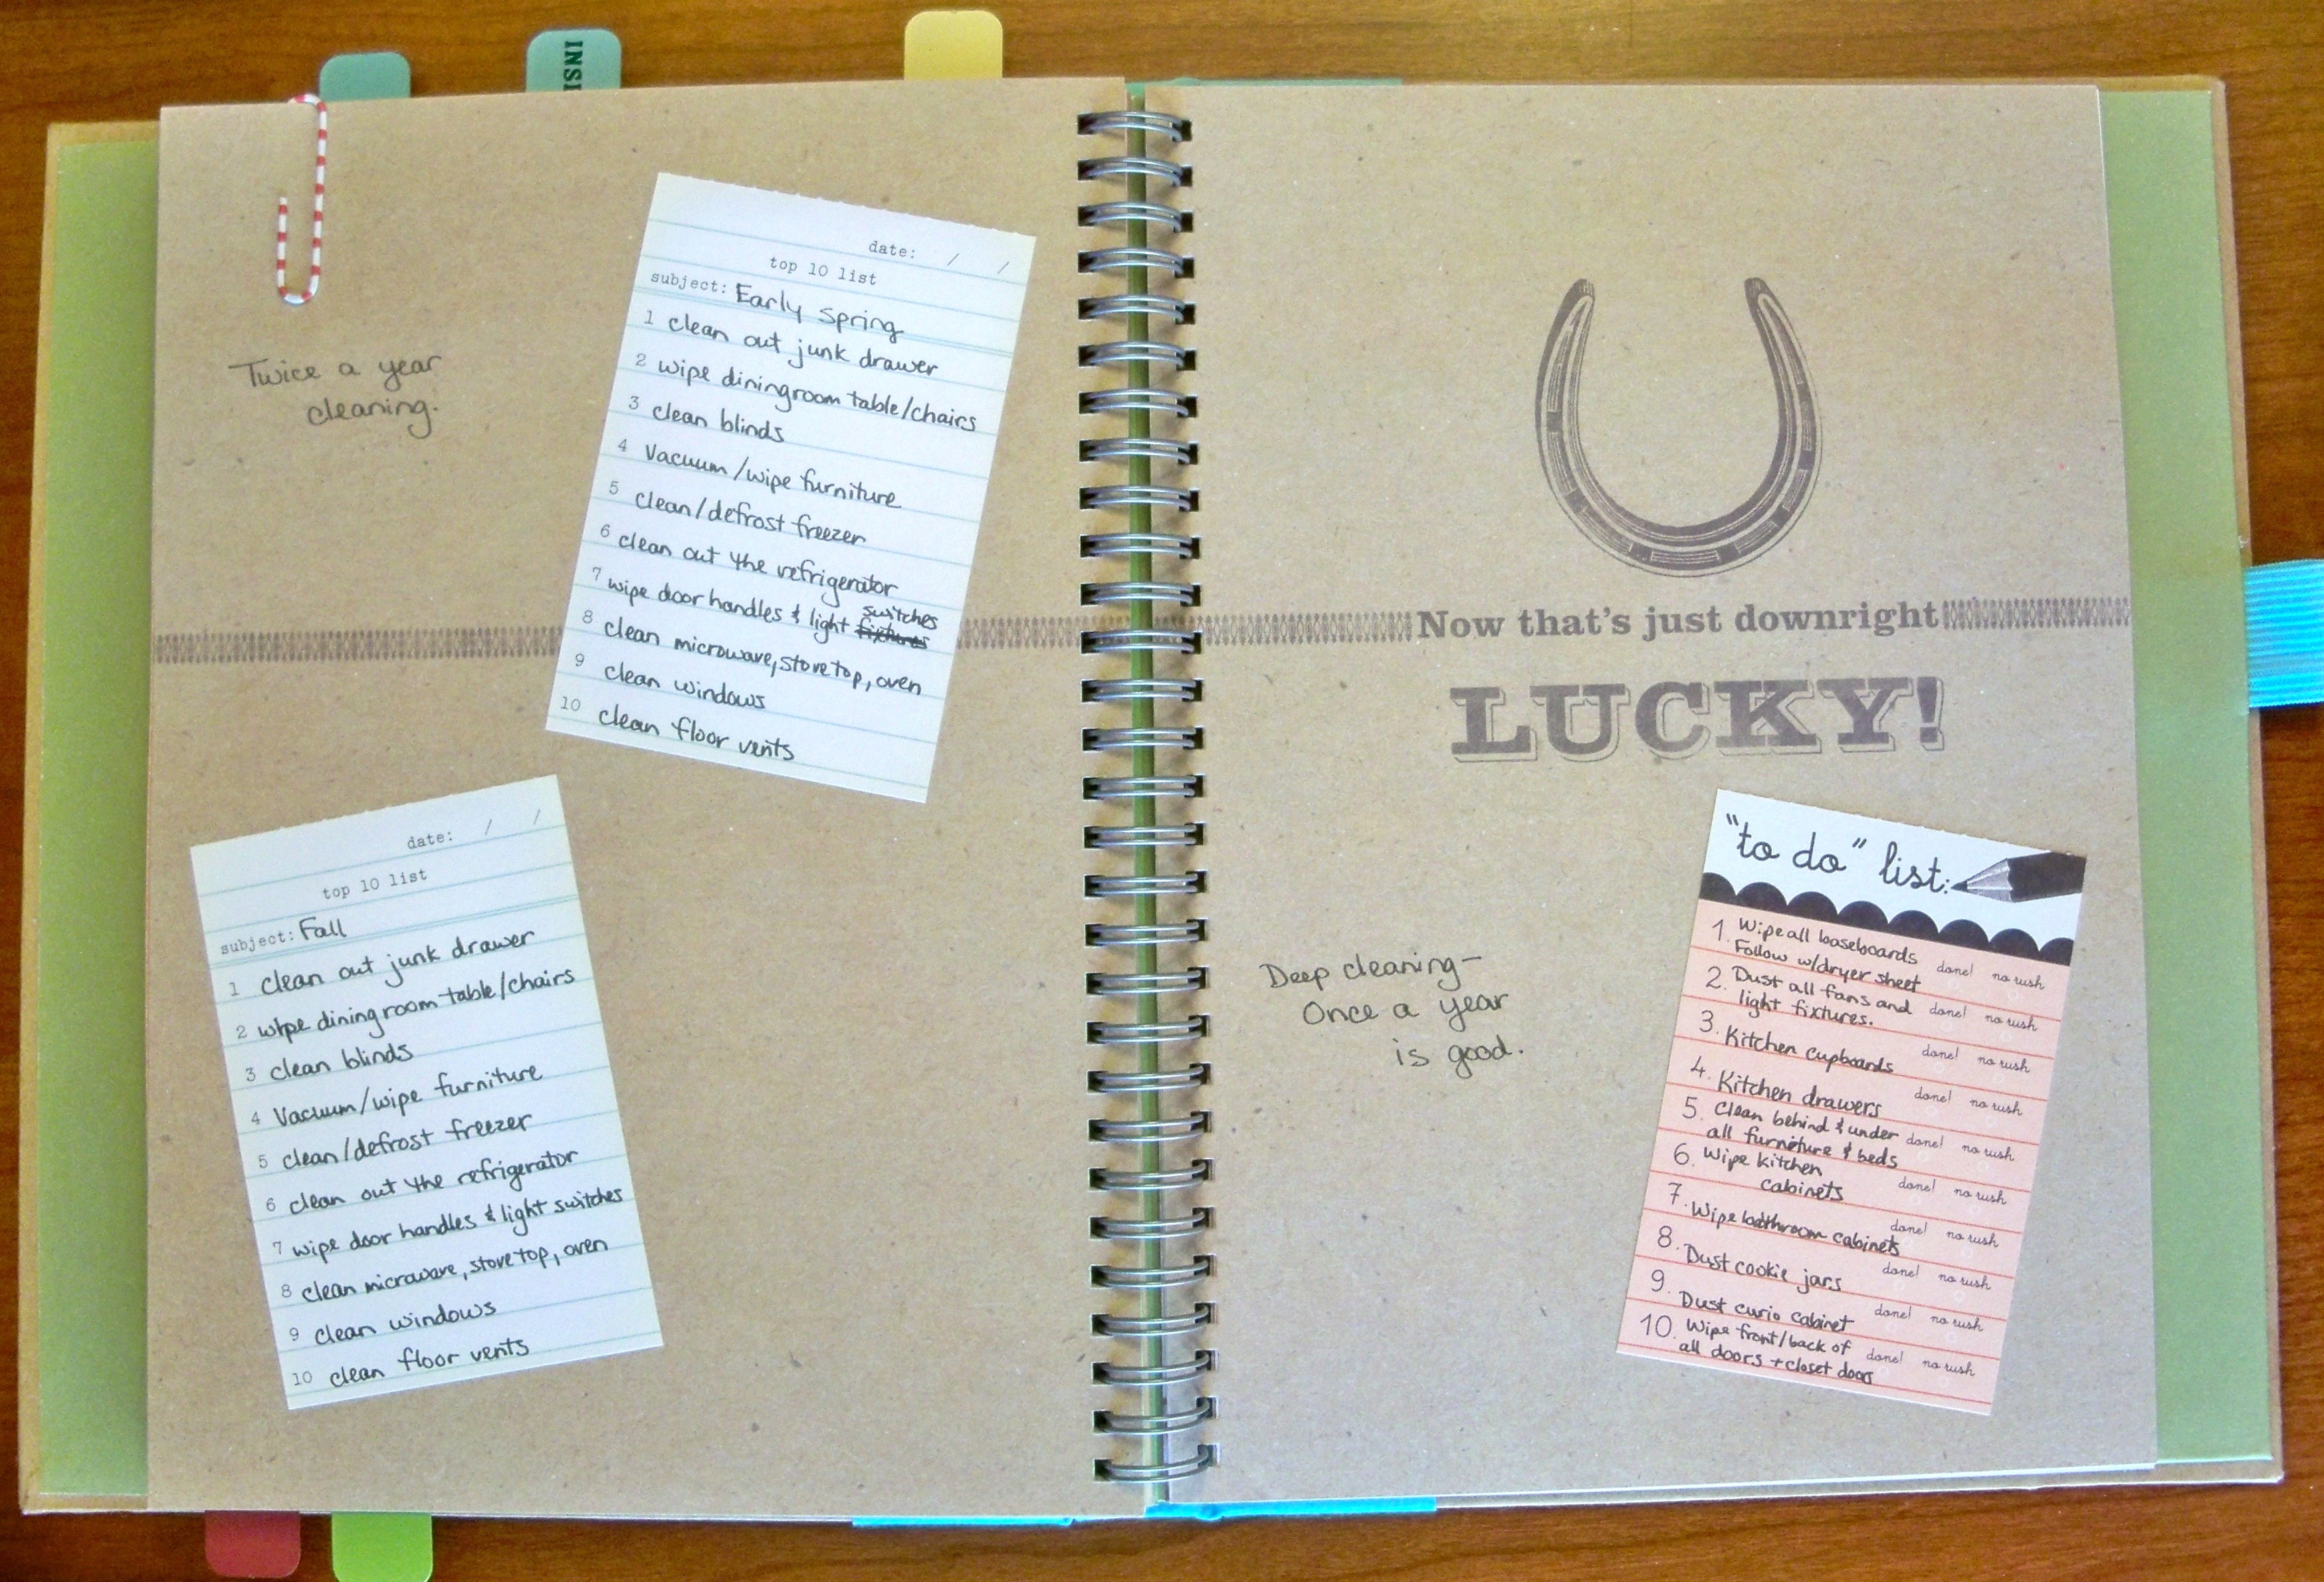 INSI
Twice a year
cleaning.
date: / /
top 10 list
subject: Early Spring
1 clean out junk drawer
2 wipe diningroom table/chairs
3 clean blinds
4 Vacuum/wipe furniture
5 clean/defrost freezer
6 clean out the refrigerator
7 wipe door handles & light fixtures switches
8 clean microwave, stove top, oven
9 clean windows
10 clean floor vents
date: / /
top 10 list
subject: Fall
1 clean out junk drawer
2 wipe diningroom table/chairs
3 clean blinds
4 Vacuum/wipe furniture
5 clean/defrost freezer
6 clean out the refrigerator
7 wipe door handles & light switches
8 clean microwave, stove top, oven
9 clean windows
10 clean floor vents
Now that's just downright
LUCKY!
Deep cleaning-
Once a year
is good.
"to do" list:
1. Wipe all baseboards
Follow w/dryer sheet done! no rush
2. Dust all fans and
light fixtures. done! no rush
3. Kitchen cupboards done! no rush
4. Kitchen drawers done! no rush
5. Clean behind & under
all furniture & beds done! no rush
6. Wipe kitchen
cabinets done! no rush
7. Wipe bathroom cabinets done! no rush
8. Dust cookie jars done! no rush
9. Dust curio cabinet done! no rush
10. Wipe front/back of
all doors + closet doors done! no rush